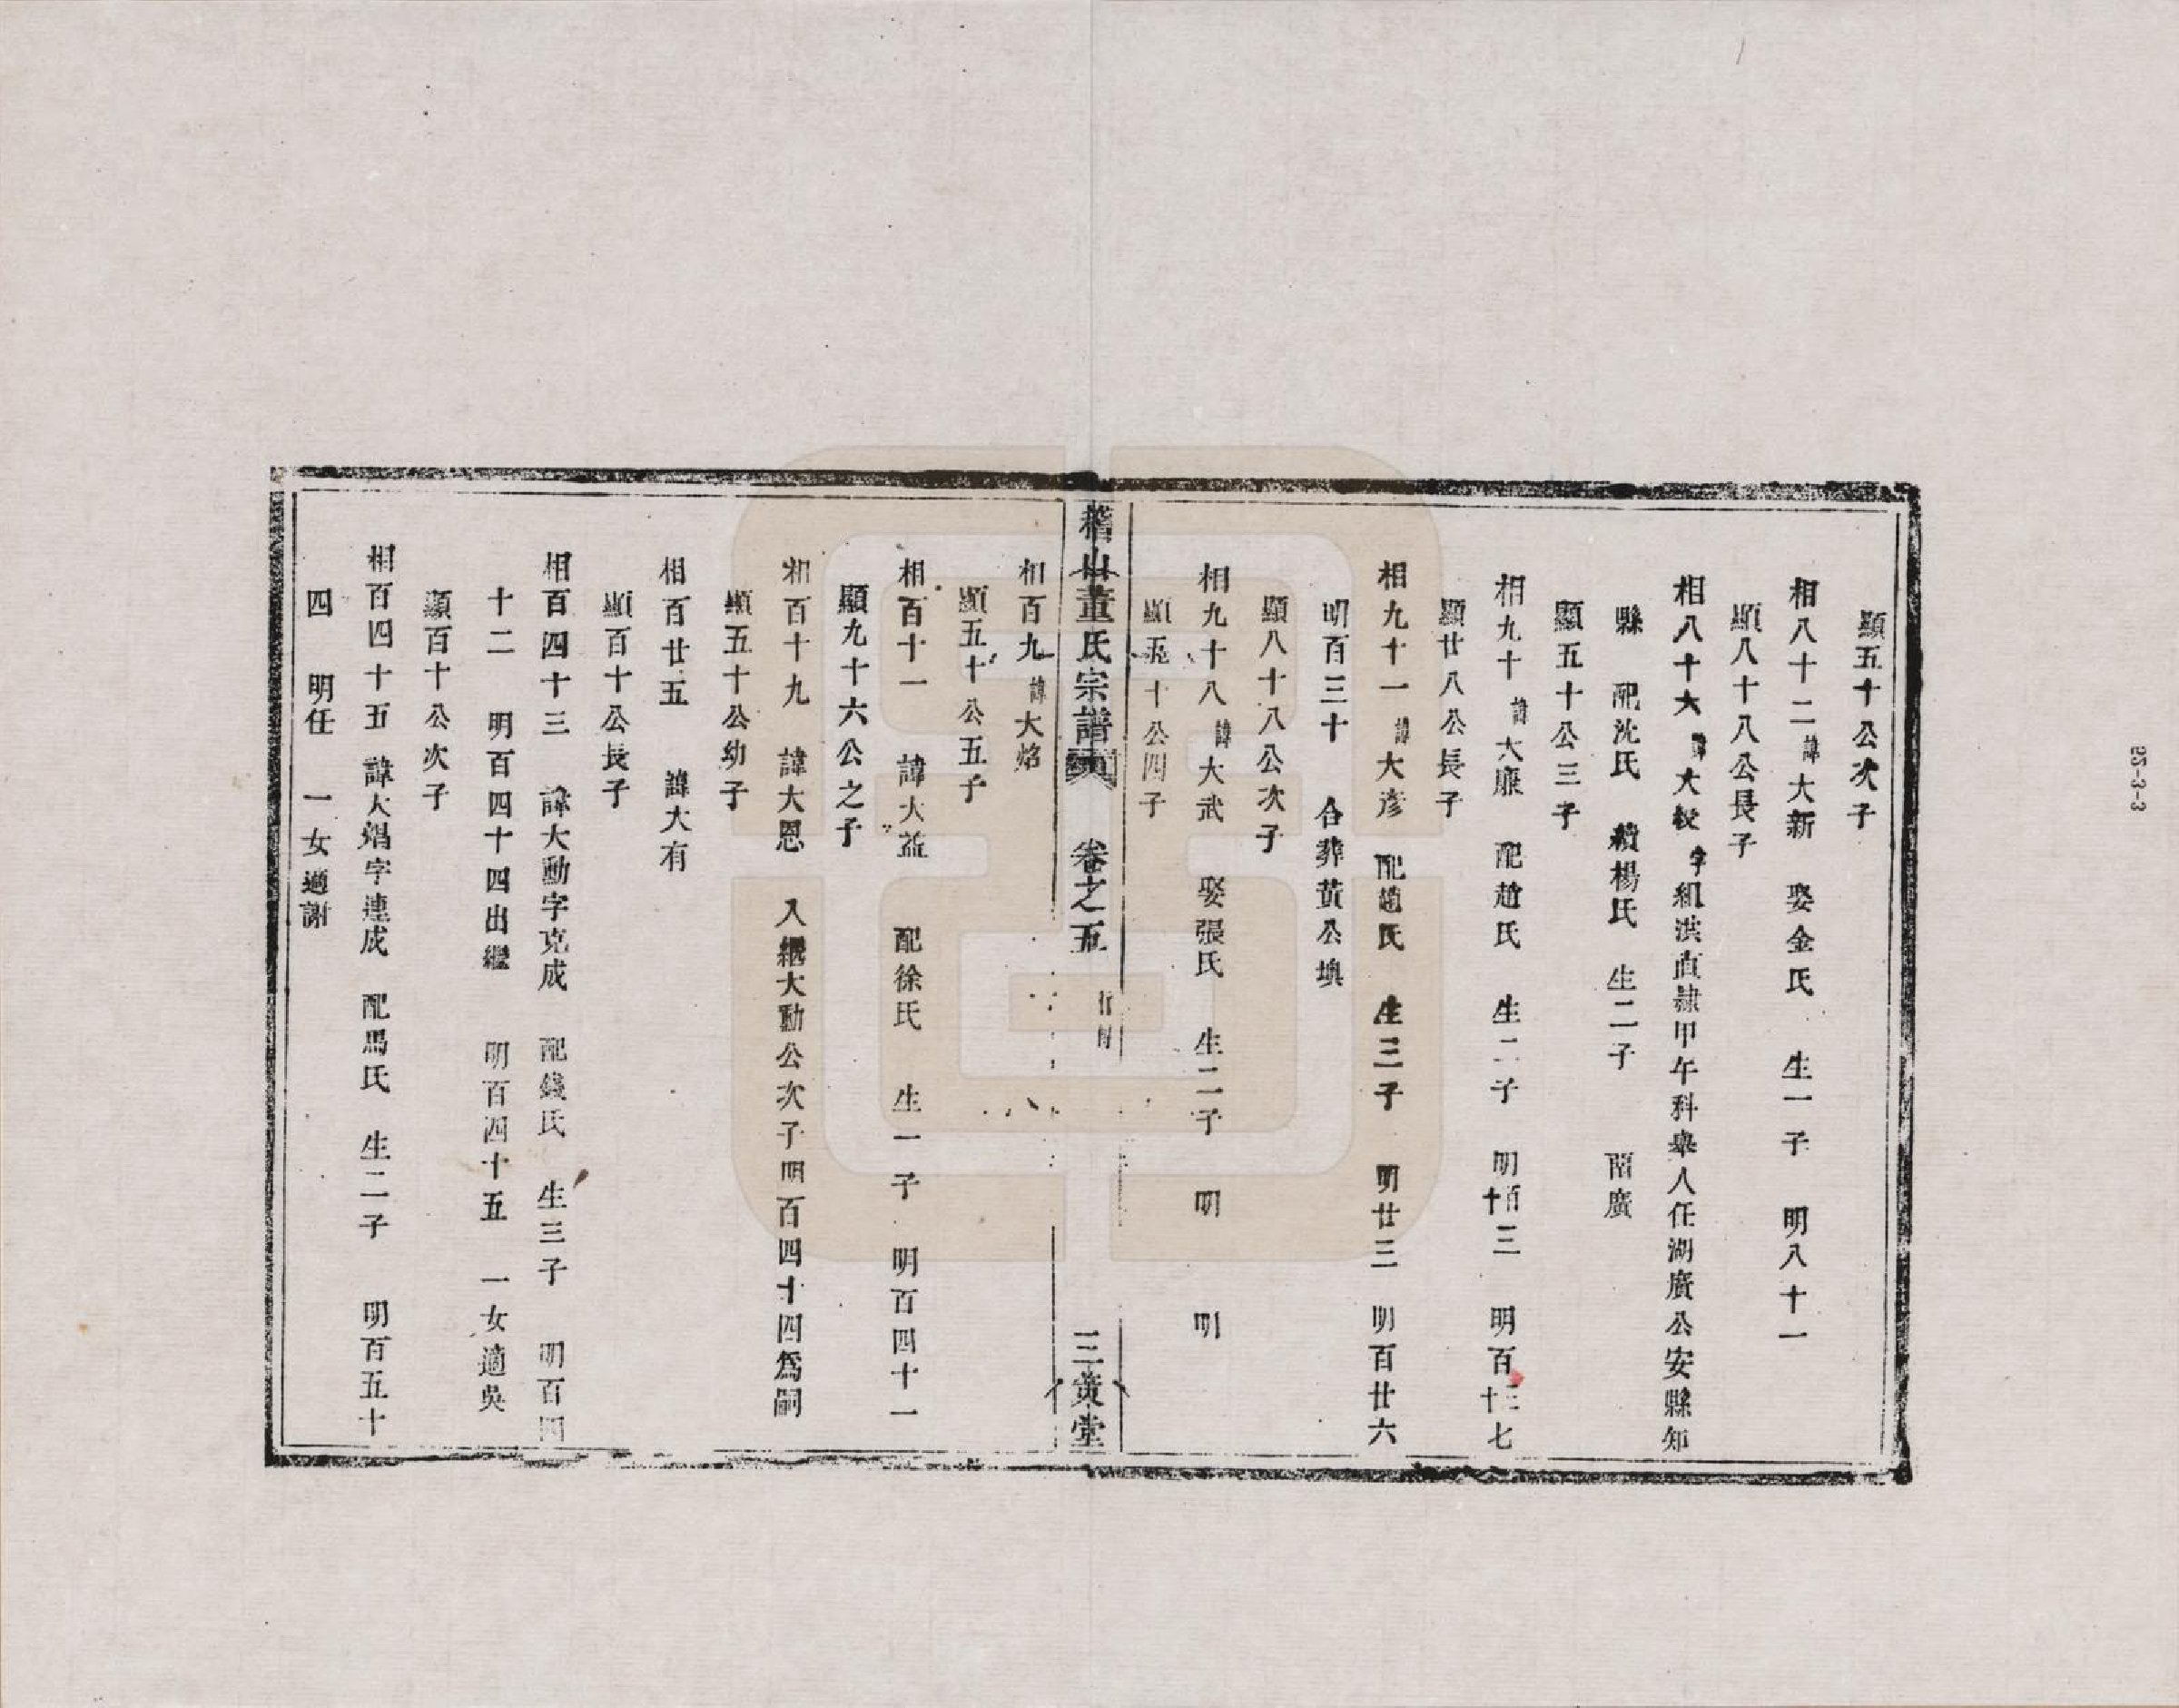 顯五十公次子
相八十二諱大新　娶金氏　生一子　明八十一
顯八十八公長子
相八十六諱大校字組洪直隸甲午科舉人任湖廣公安縣知
縣　配沈氏　續楊氏　生二子　　兩廣
顯五十公三子
相九十諱大廉　配趙氏　生二子　明百十三　明百三十七
顯廿八公長子
相九十一諱大彥　配趙氏　生三子　明廿三　明百廿六
明百三十　合葬黃公墺
顯八十八公次子
相九十八諱大武　娶張氏　生二子　明　　明
顯五十公四子
稽山董氏宗譜　卷之五　行傳　三黃堂
相百九諱大焰
顯五十公五子
相百十一　諱大益　配徐氏　生一子　明百四十一
顯九十六公之子
相百十九　諱大恩　入繼大勳公次子明百四十四爲嗣
顯五十公幼子
相百廿五　諱大有
顯百十公長子
相百四十三　諱大勳字克成　配錢氏　生三子　明百四
十二　明百四十四出繼　明百四十五　一女適吳
顯百十公次子
相百四十五　諱大焻字連成　配馬氏　生二子　明百五十
四　明任　一女適謝
85-3-3